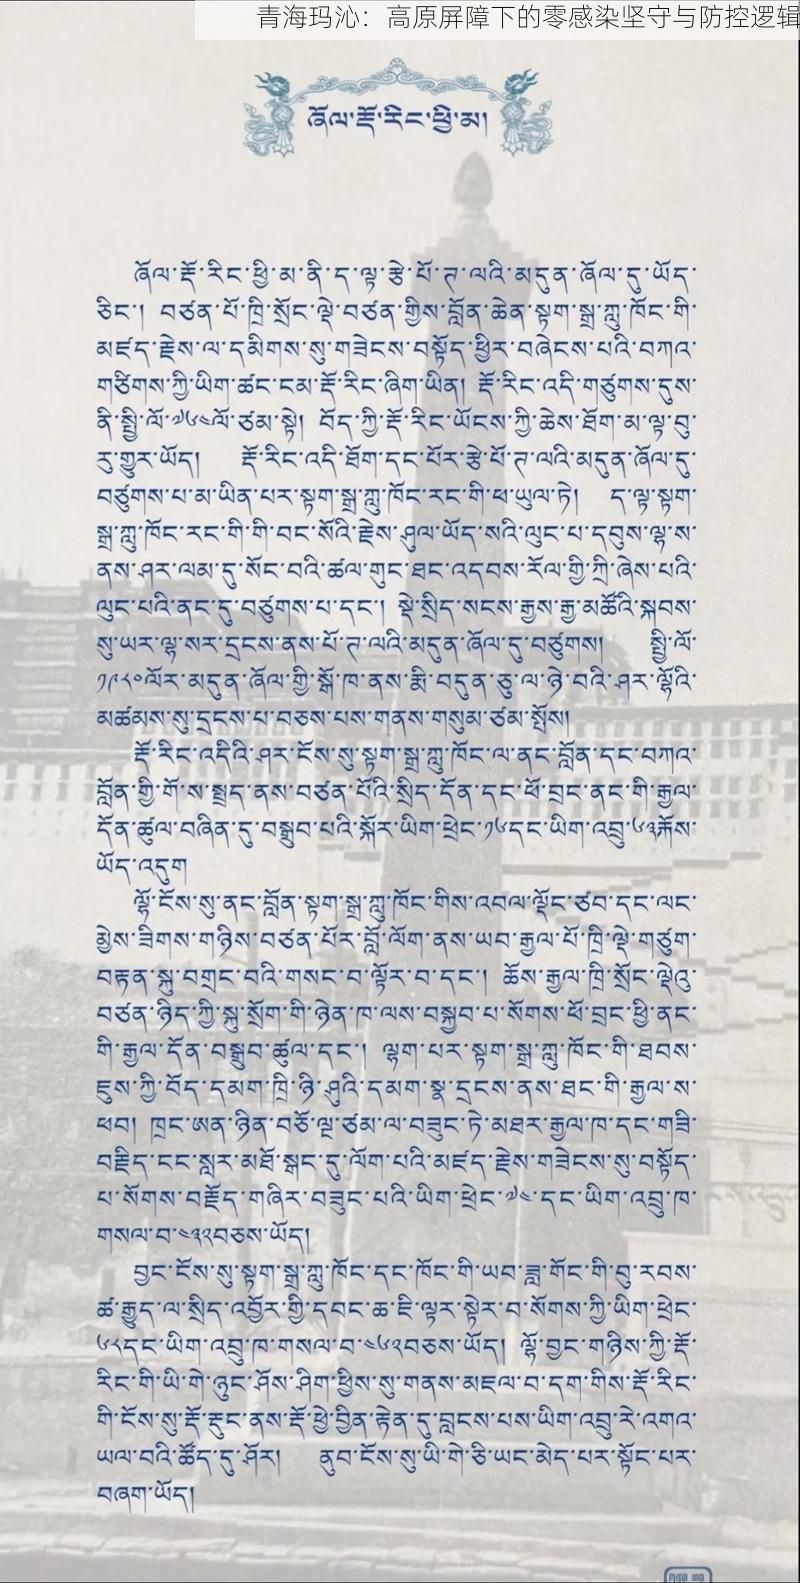 青海玛沁：高原屏障下的零感染坚守与防控逻辑
ཞོལ་རྡོ་རིང་ཕྱི་མ།
ཞོལ་རྡོ་རིང་ཕྱི་མ་ནི་ད་ལྟ་རྩེ་པོ་ཊ་ལའི་མདུན་ཞོལ་དུ་ཡོད་
ཅིང་། བཙན་པོ་ཁྲི་སྲོང་ལྡེ་བཙན་གྱིས་བློན་ཆེན་སྟག་སྒྲ་ཀླུ་ཁོང་གི་
མཛད་རྗེས་ལ་དམིགས་སུ་གཟེངས་བསྟོད་ཕྱིར་བཞེངས་པའི་བཀའ་
གཙིགས་ཀྱི་ཡིག་ཚང་ངམ་རྡོ་རིང་ཞིག་ཡིན། རྡོ་རིང་འདི་གཙུགས་དུས་
ནི་སྤྱི་ལོ་༧༦༤ལོ་ཙམ་སྟེ། བོད་ཀྱི་རྡོ་རིང་ཡོངས་ཀྱི་ཆེས་ཐོག་མ་ལྟ་བུ་
རུ་གྱུར་ཡོད། རྡོ་རིང་འདི་ཐོག་དང་པོར་རྩེ་པོ་ཊ་ལའི་མདུན་ཞོལ་དུ་
བཙུགས་པ་མ་ཡིན་པར་སྟག་སྒྲ་ཀླུ་ཁོང་རང་གི་ཕ་ཡུལ་ཏེ། ད་ལྟ་སྟག་
སྒྲ་ཀླུ་ཁོང་རང་གི་གི་བང་སོའི་རྗེས་ཤུལ་ཡོད་སའི་ལུང་པ་དབུས་ལྷ་ས་
ནས་ཤར་ལམ་དུ་སོང་བའི་ཚལ་གུང་ཐང་འདབས་རོལ་གྱི་ཀྲི་ཞེས་པའི་
ལུང་པའི་ནང་དུ་བཙུགས་པ་དང་། སྡེ་སྲིད་སངས་རྒྱས་རྒྱ་མཚོའི་སྐབས་
སུ་ཡར་ལྷ་སར་དྲངས་ནས་པོ་ཊ་ལའི་མདུན་ཞོལ་དུ་བཙུགས། སྤྱི་ལོ་
༡༩༨༠ལོར་མདུན་ཞོལ་གྱི་སྒོ་ཁ་ནས་རྨི་བདུན་ཅུ་ལ་ཉེ་བའི་ཤར་ལྷོའི་
མཚམས་སུ་དྲངས་པ་བཅས་པས་གནས་གསུམ་ཙམ་སྤོས།
རྡོ་རིང་འདིའི་ཤར་ངོས་སུ་སྟག་སྒྲ་ཀླུ་ཁོང་ལ་ནང་བློན་དང་བཀའ་
བློན་གྱི་གོ་ས་སྤྲད་ནས་བཙན་པོའི་སྲིད་དོན་དང་ཕོ་བྲང་ནང་གི་རྒྱལ་
དོན་ཚུལ་བཞིན་དུ་བསྒྲུབ་པའི་སྐོར་ཡིག་ཕྲེང་༡༦དང་ཡིག་འབྲུ་༦༣རྐོས་
ཡོད་འདུག
ལྷོ་ངོས་སུ་ནང་བློན་སྟག་སྒྲ་ཀླུ་ཁོང་གིས་འབལ་ལྡོང་ཙབ་དང་ལང་
མྱེས་ཟིགས་གཉིས་བཙན་པོར་བློ་ལོག་ནས་ཡབ་རྒྱལ་པོ་ཁྲི་ལྡེ་གཙུག་
བརྟན་སྐུ་བགྲང་བའི་གསང་བ་ལྟོར་བ་དང་། ཆོས་རྒྱལ་ཁྲི་སྲོང་ལྡེའུ་
བཙན་ཉིད་ཀྱི་སྐུ་སྲོག་གི་ཉེན་ཁ་ལས་བསྐྱབ་པ་སོགས་ཕོ་བྲང་ཕྱི་ནང་
གི་རྒྱལ་དོན་བསྒྲུབ་ཚུལ་དང་། ལྷག་པར་སྟག་སྒྲ་ཀླུ་ཁོང་གི་ཐབས་
ཇུས་ཀྱི་བོད་དམག་ཁྲི་ཉི་ཤུའི་དམག་སྣ་དྲངས་ནས་ཐང་གི་རྒྱལ་ས་
ཕབ། ཁྲང་ཨན་ཉིན་བཅོ་ལྔ་ཙམ་ལ་བཟུང་ཏེ་མཐར་རྒྱལ་ཁ་དང་གཟི་
བརྗིད་ངང་སླར་མཐོ་སྒང་དུ་ལོག་པའི་མཛད་རྗེས་གཟེངས་སུ་བསྟོད་
པ་སོགས་བརྗོད་གཞིར་བཟུང་པའི་ཡིག་ཕྲེང་༧༤་དང་ཡིག་འབྲུ་ཁ་
གསལ་བ་༤༣༢བཅས་ཡོད།
བྱང་ངོས་སུ་སྟག་སྒྲ་ཀླུ་ཁོང་དང་ཁོང་གི་ཡབ་ཟླ་གོང་གི་བུ་རབས་
ཚ་རྒྱུད་ལ་སྲིད་འབྱོར་གྱི་དབང་ཆ་ཇི་ལྟར་སྟེར་བ་སོགས་ཀྱི་ཡིག་ཕྲེང་
༦༨དང་ཡིག་འབྲུ་ཁ་གསལ་བ་༤༦༢བཅས་ཡོད། ལྷོ་བྱང་གཉིས་ཀྱི་རྡོ་
རིང་གི་ཡི་གེ་ཉུང་ཤོས་ཤིག་ཕྱིས་སུ་གནས་མཇལ་བ་དག་གིས་རྡོ་རིང་
གི་ངོས་སུ་རྡོ་རྡུང་ནས་རྡོ་ཕྱེ་བྱིན་རྟེན་དུ་བླངས་པས་ཡིག་འབྲུ་རེ་འགའ་
ཡལ་བའི་ཚོད་དུ་ཤོར། ནུབ་ངོས་སུ་ཡི་གེ་ཅི་ཡང་མེད་པར་སྟོང་པར་
བཞག་ཡོད།